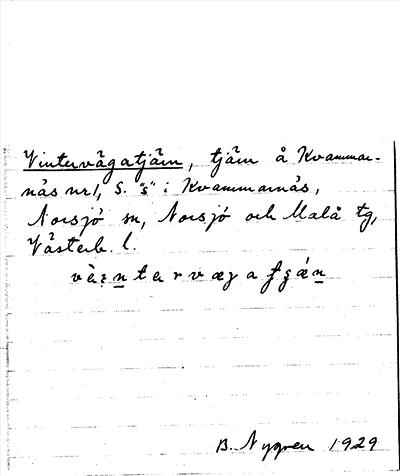 Vintervägatjärn, tjärn å Kvammar-
näs nr 1, S. "s" i Kvammarnäs,
Norsjö sn, Norsjö och Malå tg,
Västerb. l.
B. Nygren 1929